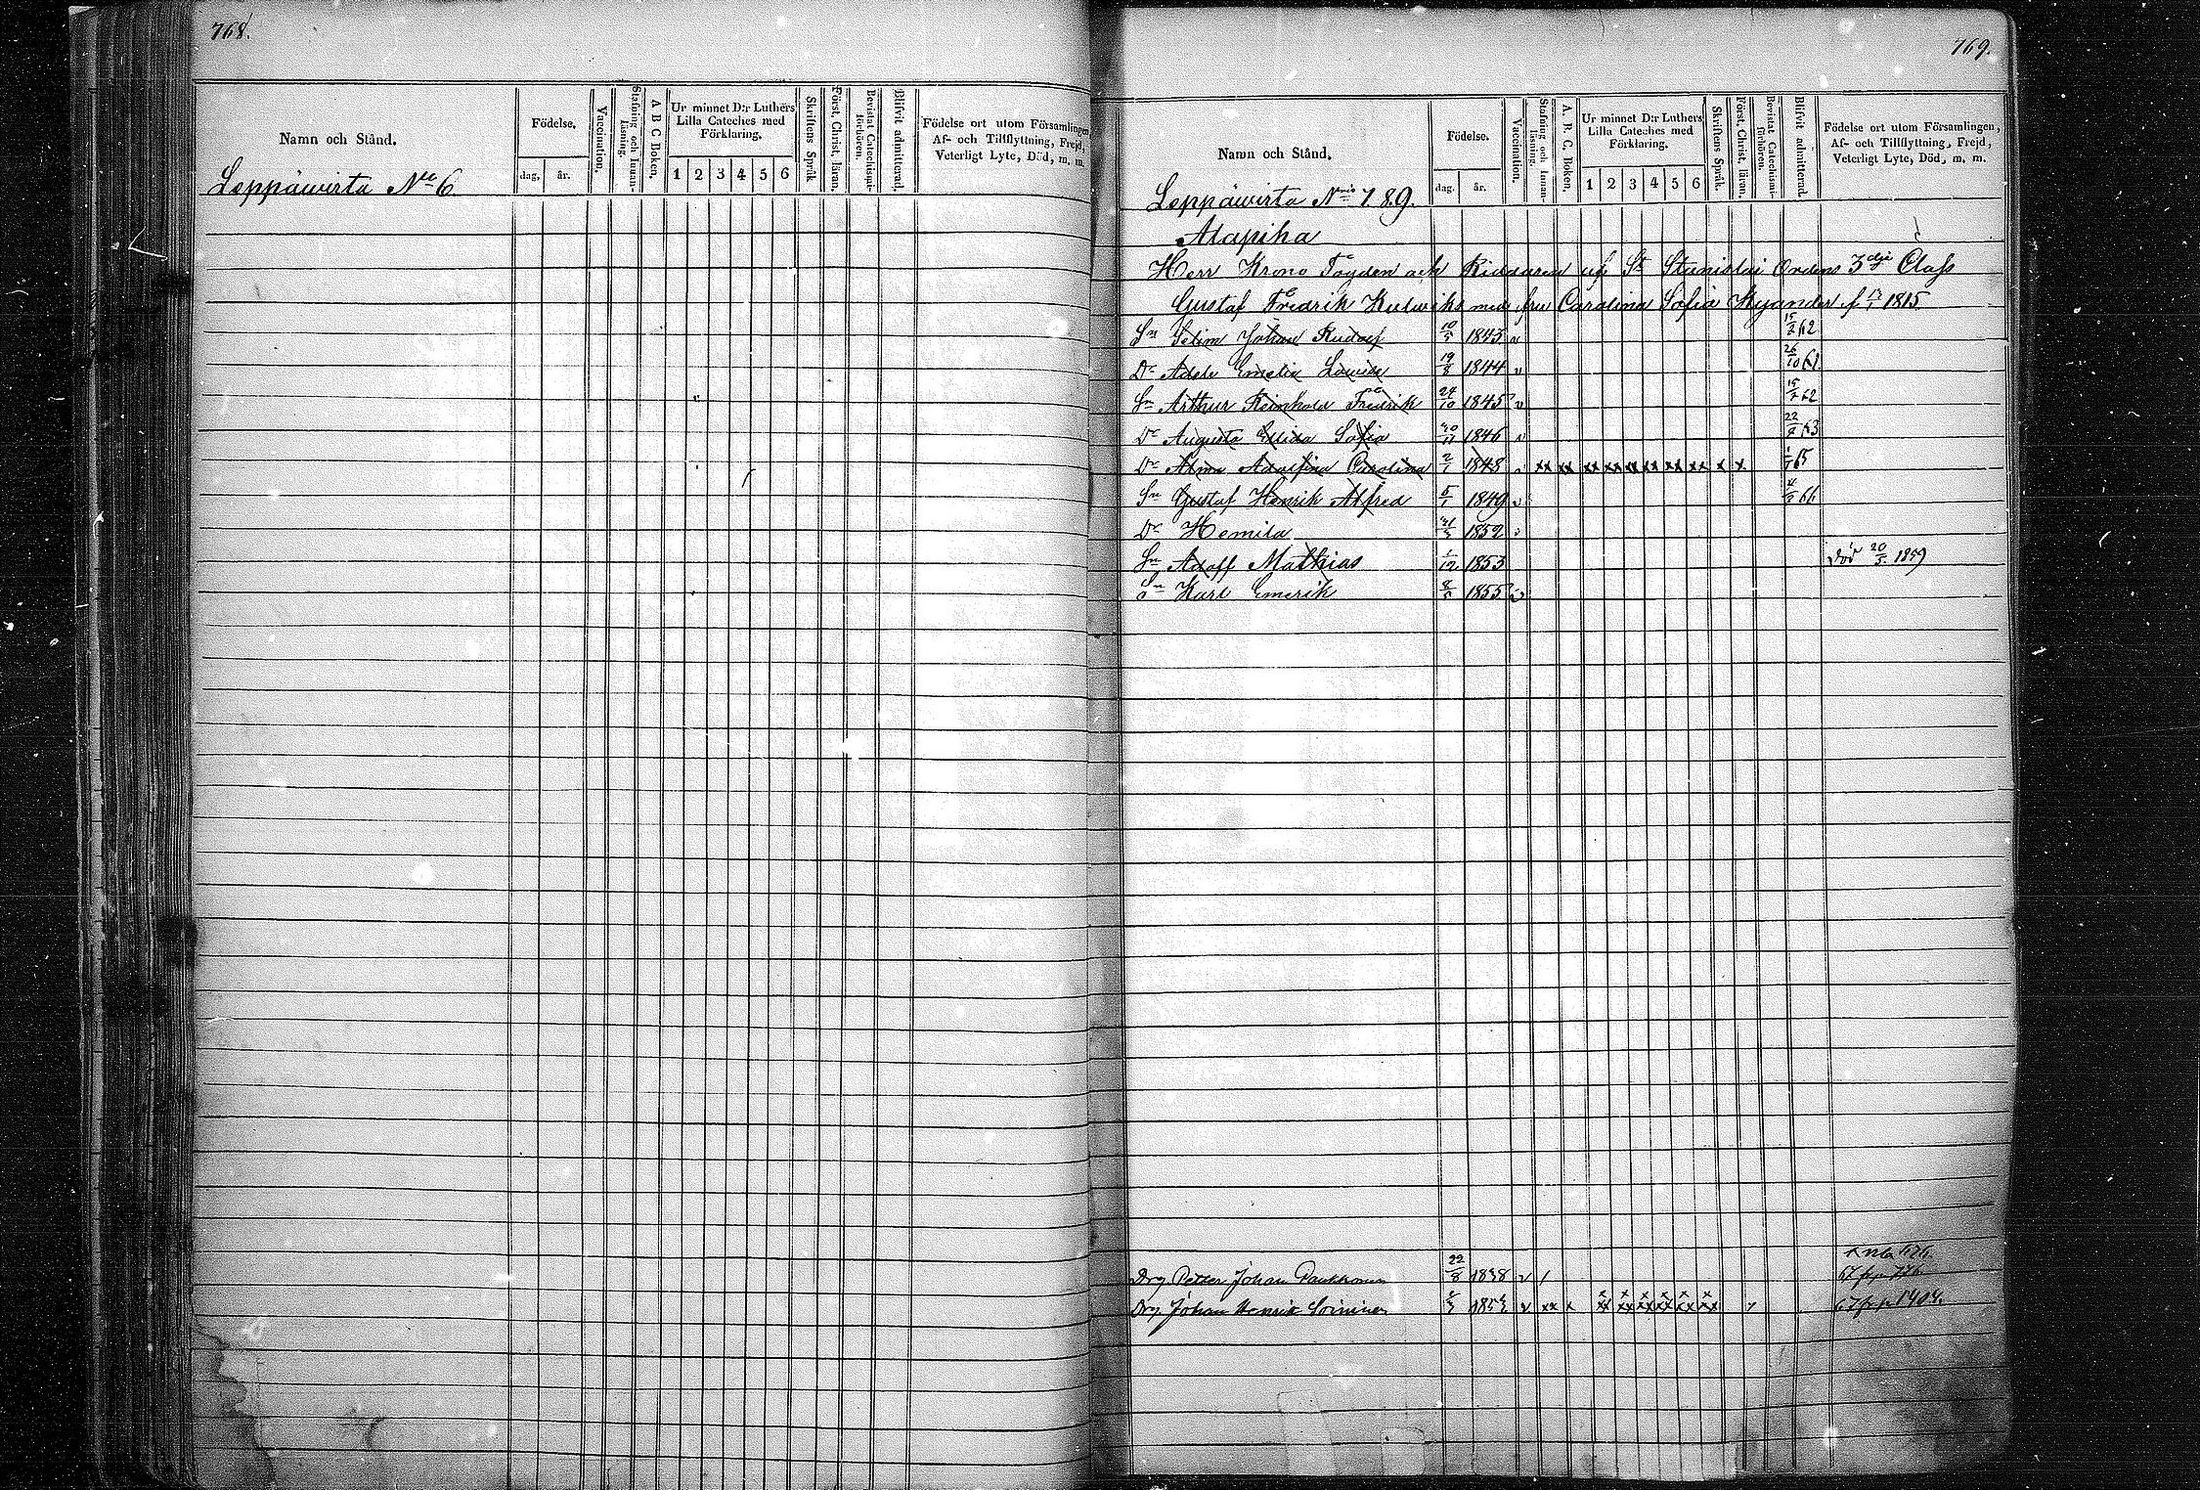 768.
Namn och Stånd.
Födelse.
dag. år.
Vaccination.
Stafning och Innan-läsning.
A B C Boken.
Ur minnet D:r Luthers
Lilla Cateches med
Förklaring.
1 2 3 4 5 6
Skriftens Språk
Först. Christ. läran.
Bevistat Catechismi-förhören.
Blifvit admitterad.
Födelse ort utom Församlingen,
Af- och Tillflyttning, Frejd,
Veterligt Lyte, Död, m. m.
Leppäwirta No 6
769.
Namn och Stånd.
Födelse.
dag. år.
Vaccination.
Stafning och Innan-läsning.
A. B. C. Boken.
Ur minnet D:r Luthers
Lilla Cateches med
Förklaring.
1 2 3 4 5 6
Skriftens Språk.
Först. Christ. läran.
Bevistat Catechismi-förhören.
Blifvit admitterad.
Födelse ort utom Församlingen,
Af- och Tillflyttning, Frejd,
Veterligt Lyte, Död, m. m.
Leppäwirta Nris 7. 8. 9.
Alapiha
Herr Krono Fogden och Riddaren af St Stanislai Ordens 3dje Class
Gustaf Fredrik Kulwik med fru Carolina Sofia Kyander f. 1815
Sn Selim Johan Rudolf 1843 62
Dr Adele Emelie Lowisa 19/8 1844 v 26/10 61
Sn Arthur Reinhold Fredrik 24/10 1845 v 62
Dr Augusta Elida Sofia 1846 v 63
Dr Alma Adolfina Carolina 1848 xx xx xx xx xx xx xx xx x x 65
Sn Gustaf Henrik Alfred 5/1 1849 v 66
Dr Hemila 1852
Sn Adolf Mathias 1/12 1853 död 20/5 1859
Sn Karl Emerik 1855 v
Drg Petter Johan 22/8 1838 v
Drg Johan Henrik Soininen v xx x xx xx xx xx xx xx 67 fr p 1404.